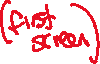 (first
screen)